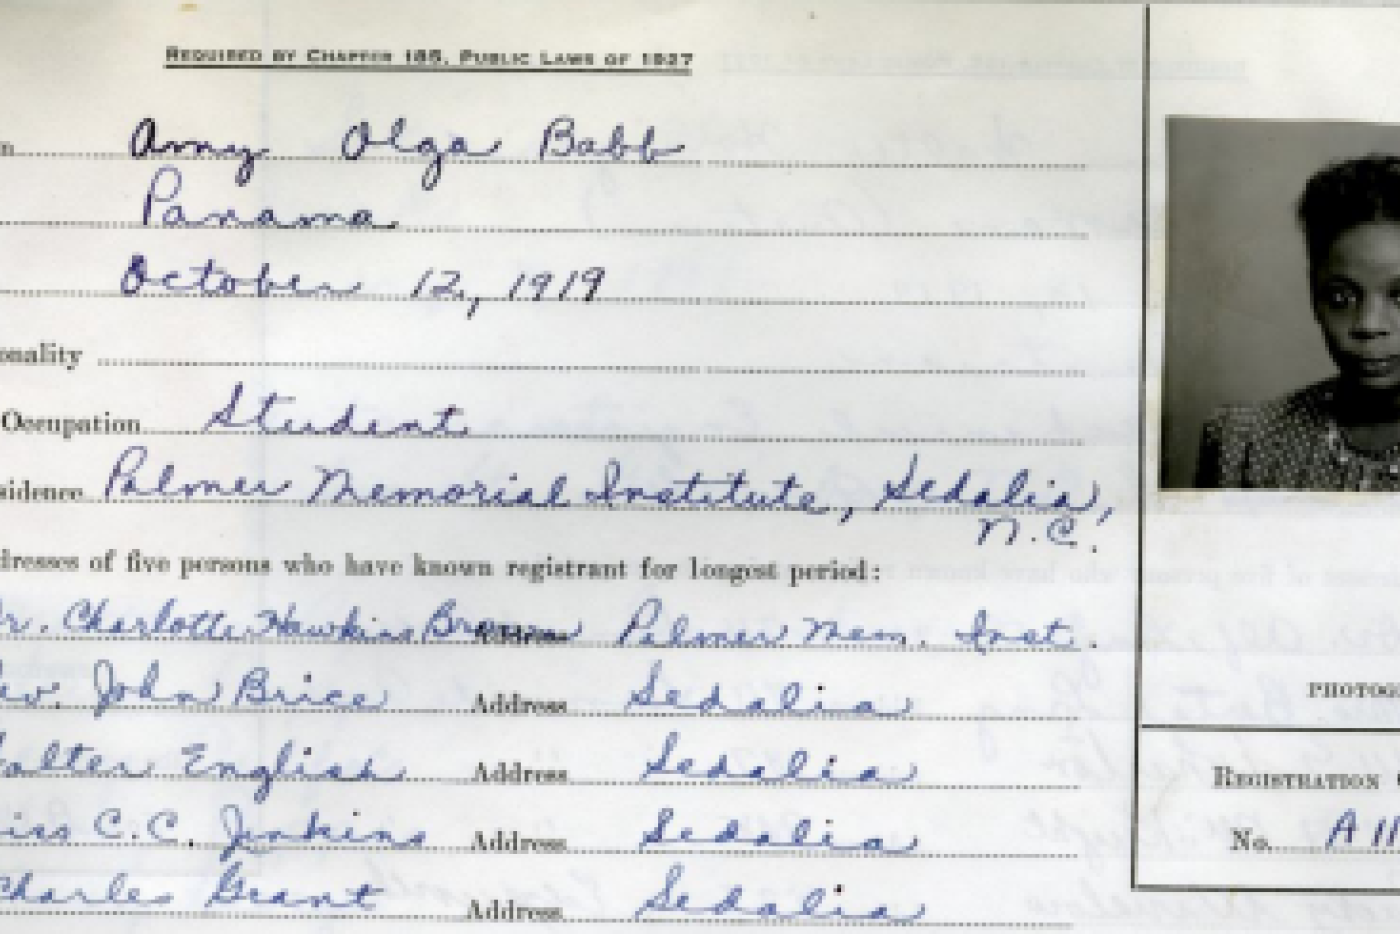 REQUIRED BY CHAPTER 185, PUBLIC LAWS OF 1927
n Amy Olga Babb
Panama
October 12, 1919
onality
Occupation Student
sidence Palmer Memorial Institute, Sedalia,
N.C.
dresses of five persons who have known registrant for longest period:
r. Charlotte Hawkins Brown Address Palmer Mem. Inst.
ev. John Brice Address Sedalia
alter English Address Sedalia
iss C.C. Jenkins Address Sedalia
Charles Grant Address Sedalia
PHOTOG
REGISTRATION C
No. A 11